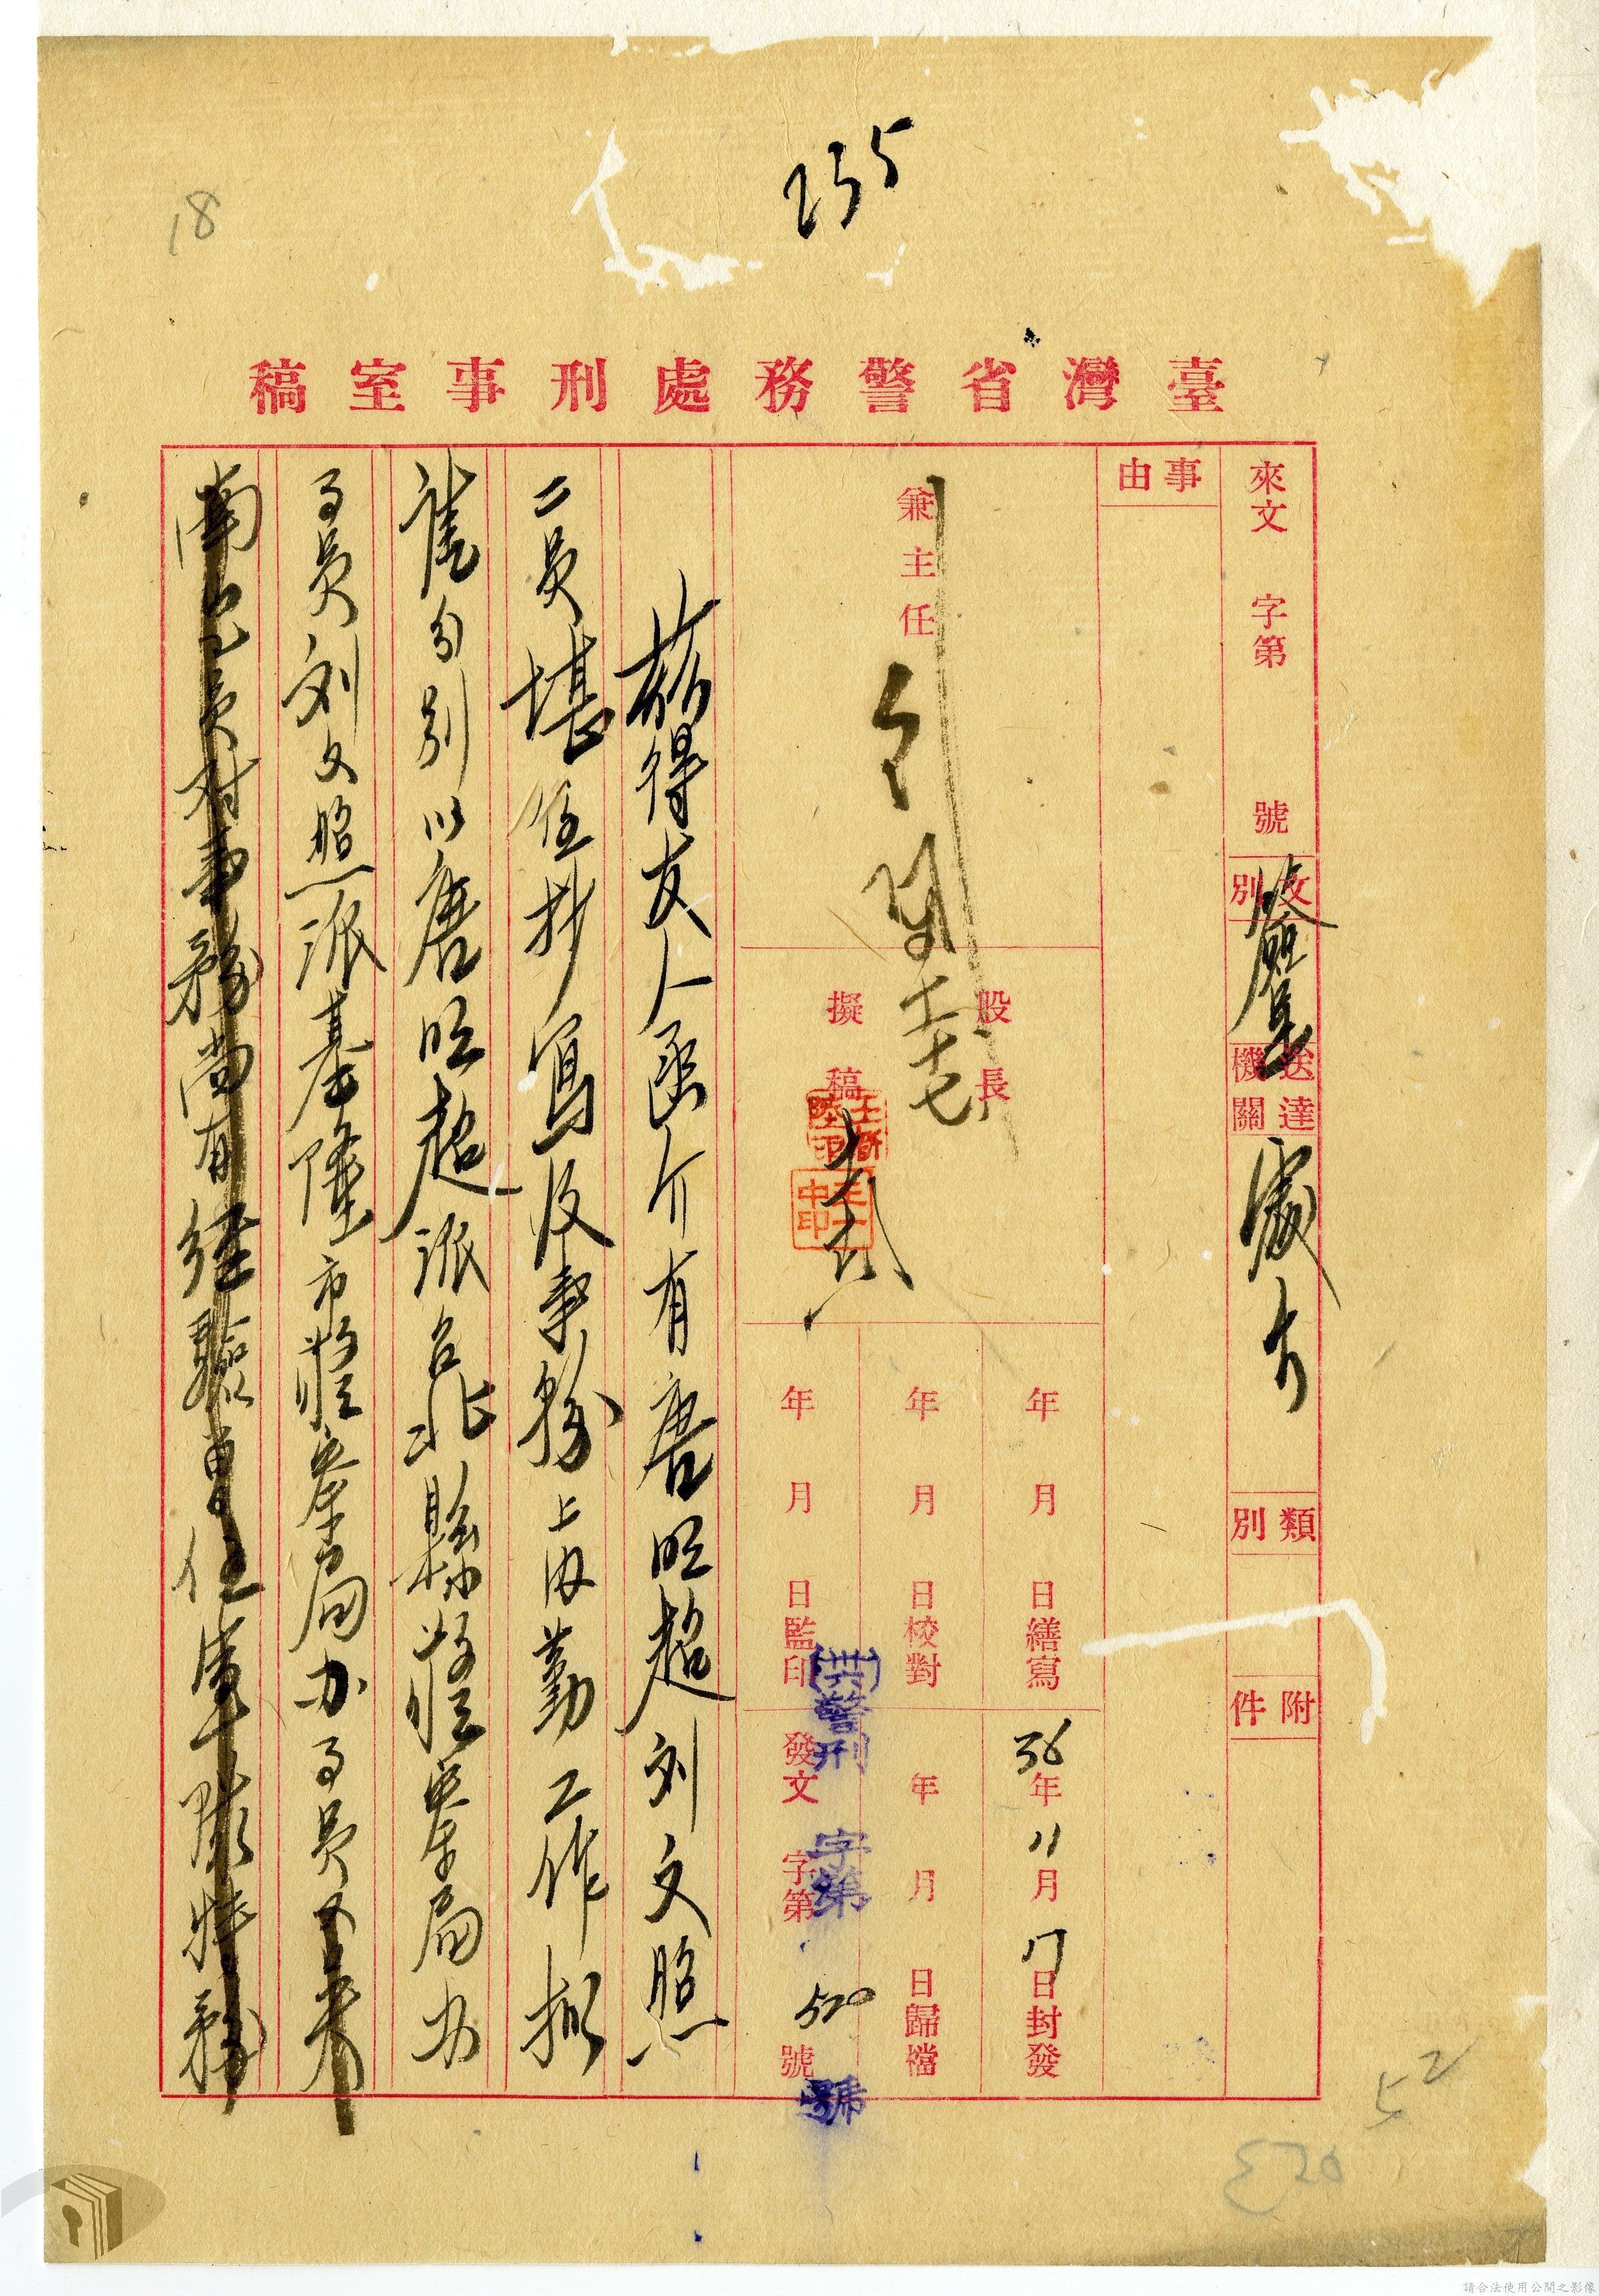 255
18
臺灣省警務處刑事室稿
來文 字第 號
文別 簽呈
送達機關 處長
類別
附件
事由
兼主任
股長
擬稿
年 月 日繕寫
年 月 日校對
年 月 日監印
36年11月17日封發
年 月 日歸檔
發文 字第 520 號
(卅六)警刑 字第 號
茲得友人函介有唐旺超刘文照
二員堪任抄寫及事務上內勤工作擬
准分別以唐旺超派台北縣警察局办
事員刘文照派基隆市警察局办事員
員对事務尚有經驗曾任軍隊特務
52
520
請合法使用公開之影像